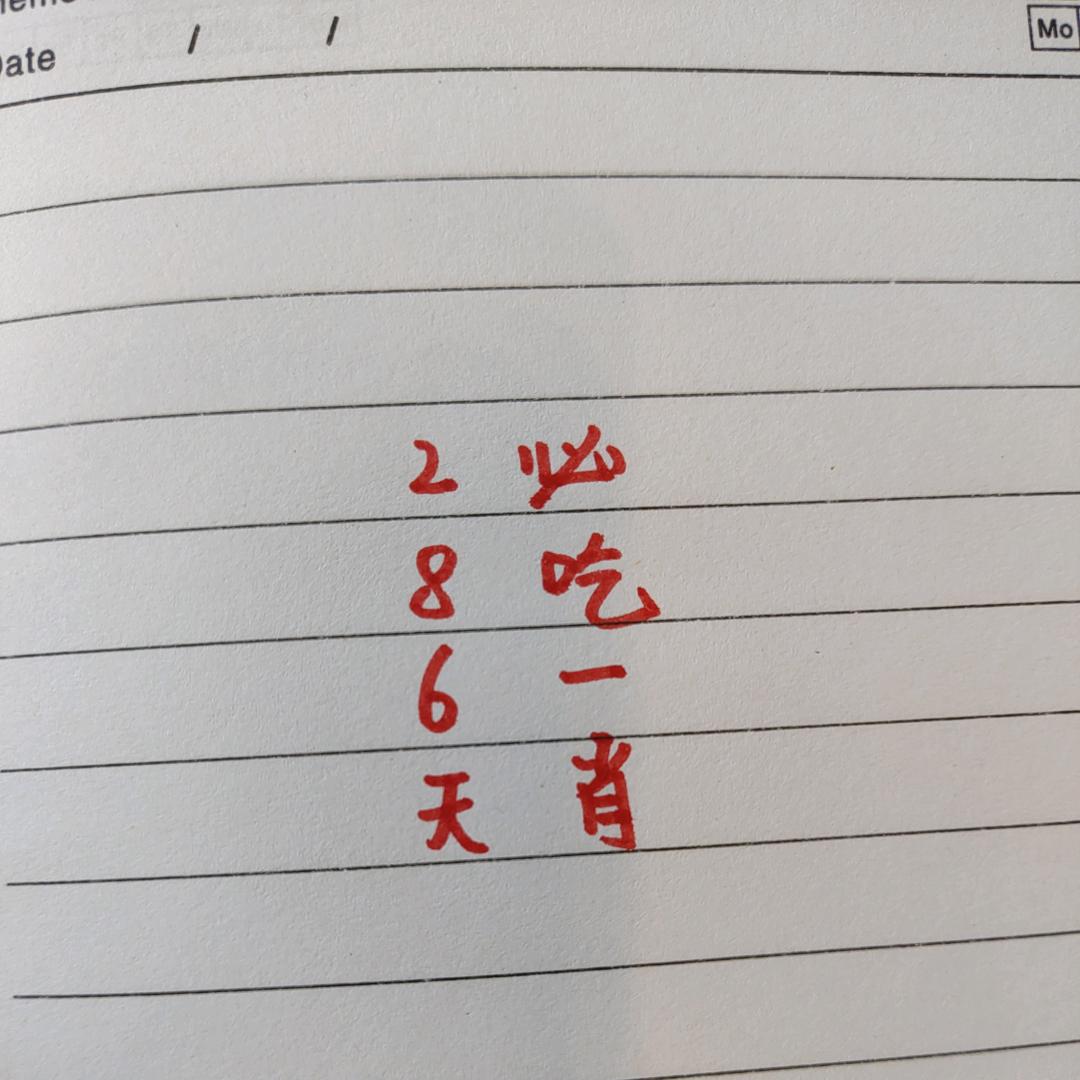 Date / /
Mo
必吃一肖
286天